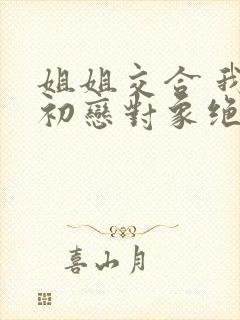 姐姐交合 我
初戀對象绝
喜山月